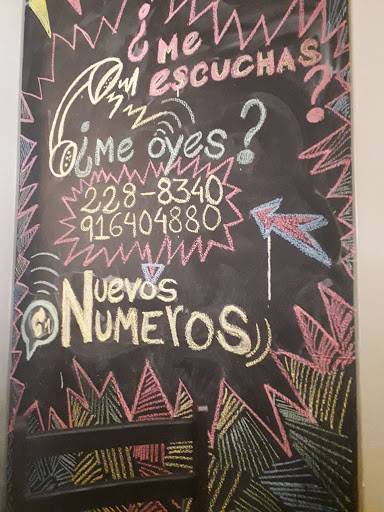 ¿Me
escuchas?
¿Me oyes?
228-8340
916404880
Nuevos
Numeros